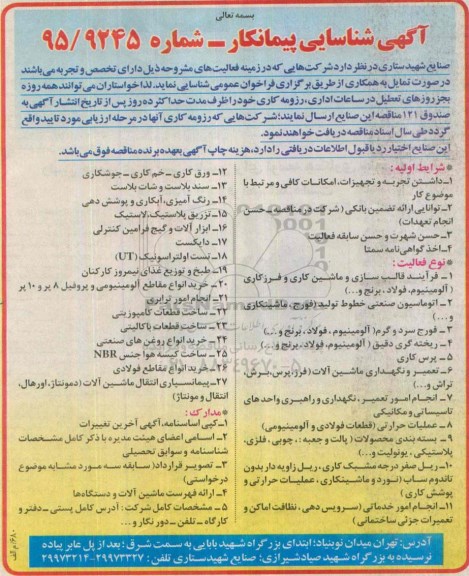 بسمه تعالی
آگهی شناسایی پیمانکار ـ شماره ۹۵/۹۲۴۵
صنایع شهید ستاری در نظر دارد شرکت هایی که در زمینه فعالیت های مشروحه ذیل دارای تخصص و تجربه می باشند
در صورت تمایل به همکاری از طریق برگزاری فراخوان عمومی شناسایی نماید. لذا خواستاران می توانند همه روزه
بجز روزهای تعطیل در ساعات اداری، رزومه کاری خود را ظرف مدت حداکثر ده روز پس از تاریخ انتشار آگهی به
صندوق ۱۲۱ مناقصه این صنایع ارسال نمایند؛ شرکت هایی که رزومه کاری آنها در مرحله ارزیابی مورد تایید واقع
گردد طی سال اسناد مناقصه دریافت خواهند نمود.
این صنایع اختیار رد یا قبول اطلاعات دریافتی را دارد، هزینه چاپ آگهی بعهده برنده مناقصه فوق می باشد.
* شرایط اولیه :
۱ـ داشتن تجربه و تجهیزات، امکانات کافی و مرتبط با
موضوع کار
۲ـ توانایی ارائه تضمین بانکی (شرکت در مناقصه ـ حسن
انجام تعهدات)
۳ـ حسن شهرت و حسن سابقه فعالیت
۴ـ اخذ گواهی نامه سمتا
* نوع فعالیت :
۱ ـ فرآیند قالب سازی و ماشین کاری و فرزکاری
( آلومینیوم، فولاد، برنج و...)
۲ ـ اتوماسیون صنعتی خطوط تولید (فورج، ماشینکاری
و ...)
۳ ـ فورج سرد و گرم( آلومینیوم، فولاد، برنج و...)
۴ ـ ریخته گری دقیق ( آلومینیوم، فولاد، برنج و...)
۵ ـ پرس کاری
۶ ـ تعمیر و نگهداری ماشین آلات (فرز، پرس، برش،
تراش و...)
۷ ـ انجام امور تعمیر، نگهداری و راهبری واحد های
تاسیساتی و مکانیکی
۸ ـ عملیات حرارتی (قطعات فولادی و آلومینیومی)
۹ ـ بسته بندی محصولات ( پالت و جعبه : ، چوبی ، فلزی،
پلاستیکی ، یونولیت و...)
۱۰ ـ ریل صفر درجه مشبک کاری، ریل زاویه دار بدون
تاندوم ساب (نورد و ماشینکاری ، عملیات حرارتی و
پوشش کاری )
۱۱ ـ انجام امور خدماتی (سرویس دهی ، نظافت اماکن و
تعمیرات جزئی ساختمانی)
۱۲ـ ورق کاری ـ خم کاری ـ جوشکاری
۱۳ـ سند بلاست و شات بلاست
۱۴ـ رنگ آمیزی، آبکاری و پوشش دهی
۱۵ـ تزریق پلاستیک، لاستیک
۱۶ـ ابزار آلات و گیج فرامین کنترلی
۱۷ـ دایکست
۱۸ـ تست اولتراسونیک (UT)
۱۹ـ طبخ و توزیع غذای نیمروز کارکنان
۲۰ـ خرید انواع مقاطع آلومینیومی و پروفیل ۸ پر و ۱۰ پر
۲۱ـ انجام امور ترابری
۲۲ـ ساخت قطعات کامپوزیتی
۲۳ـ ساخت قطعات باکالیتی
۲۴ـ خرید انواع روغن های صنعتی
۲۵ـ ساخت کیسه هوا جنس NBR
۲۶ـ خرید انواع مقاطع فولادی
۲۷ـ پیمانسپاری انتقال ماشین آلات (دمونتاژ، اورهال،
انتقال و مونتاژ)
* مدارک :
۱ـ کپی اساسنامه، آگهی آخرین تغییرات
۲ـ اسامی اعضای هیئت مدیره با ذکر کامل مشخصات
شناسنامه و سوابق تحصیلی
۳ـ تصویر قرارداد( سابقه سه مورد مشابه موضوع
درخواستی)
۴ـ ارائه فهرست ماشین آلات و دستگاه ها
۵ـ مشخصات کامل شرکت : آدرس کامل پستی ـ دفتر و
کارگاه ـ تلفن ـ دورنگار و...
آدرس: تهران میدان نوبنیاد؛ ابتدای بزرگراه شهید بابایی به سمت شرق ؛ بعد از پل عابر پیاده
نرسیده به بزرگراه شهید صیاد شیرازی؛ صنایع شهید ستاری تلفن : ۲۹۹۷۳۳۲۷-۲۹۹۷۳۲۱۴